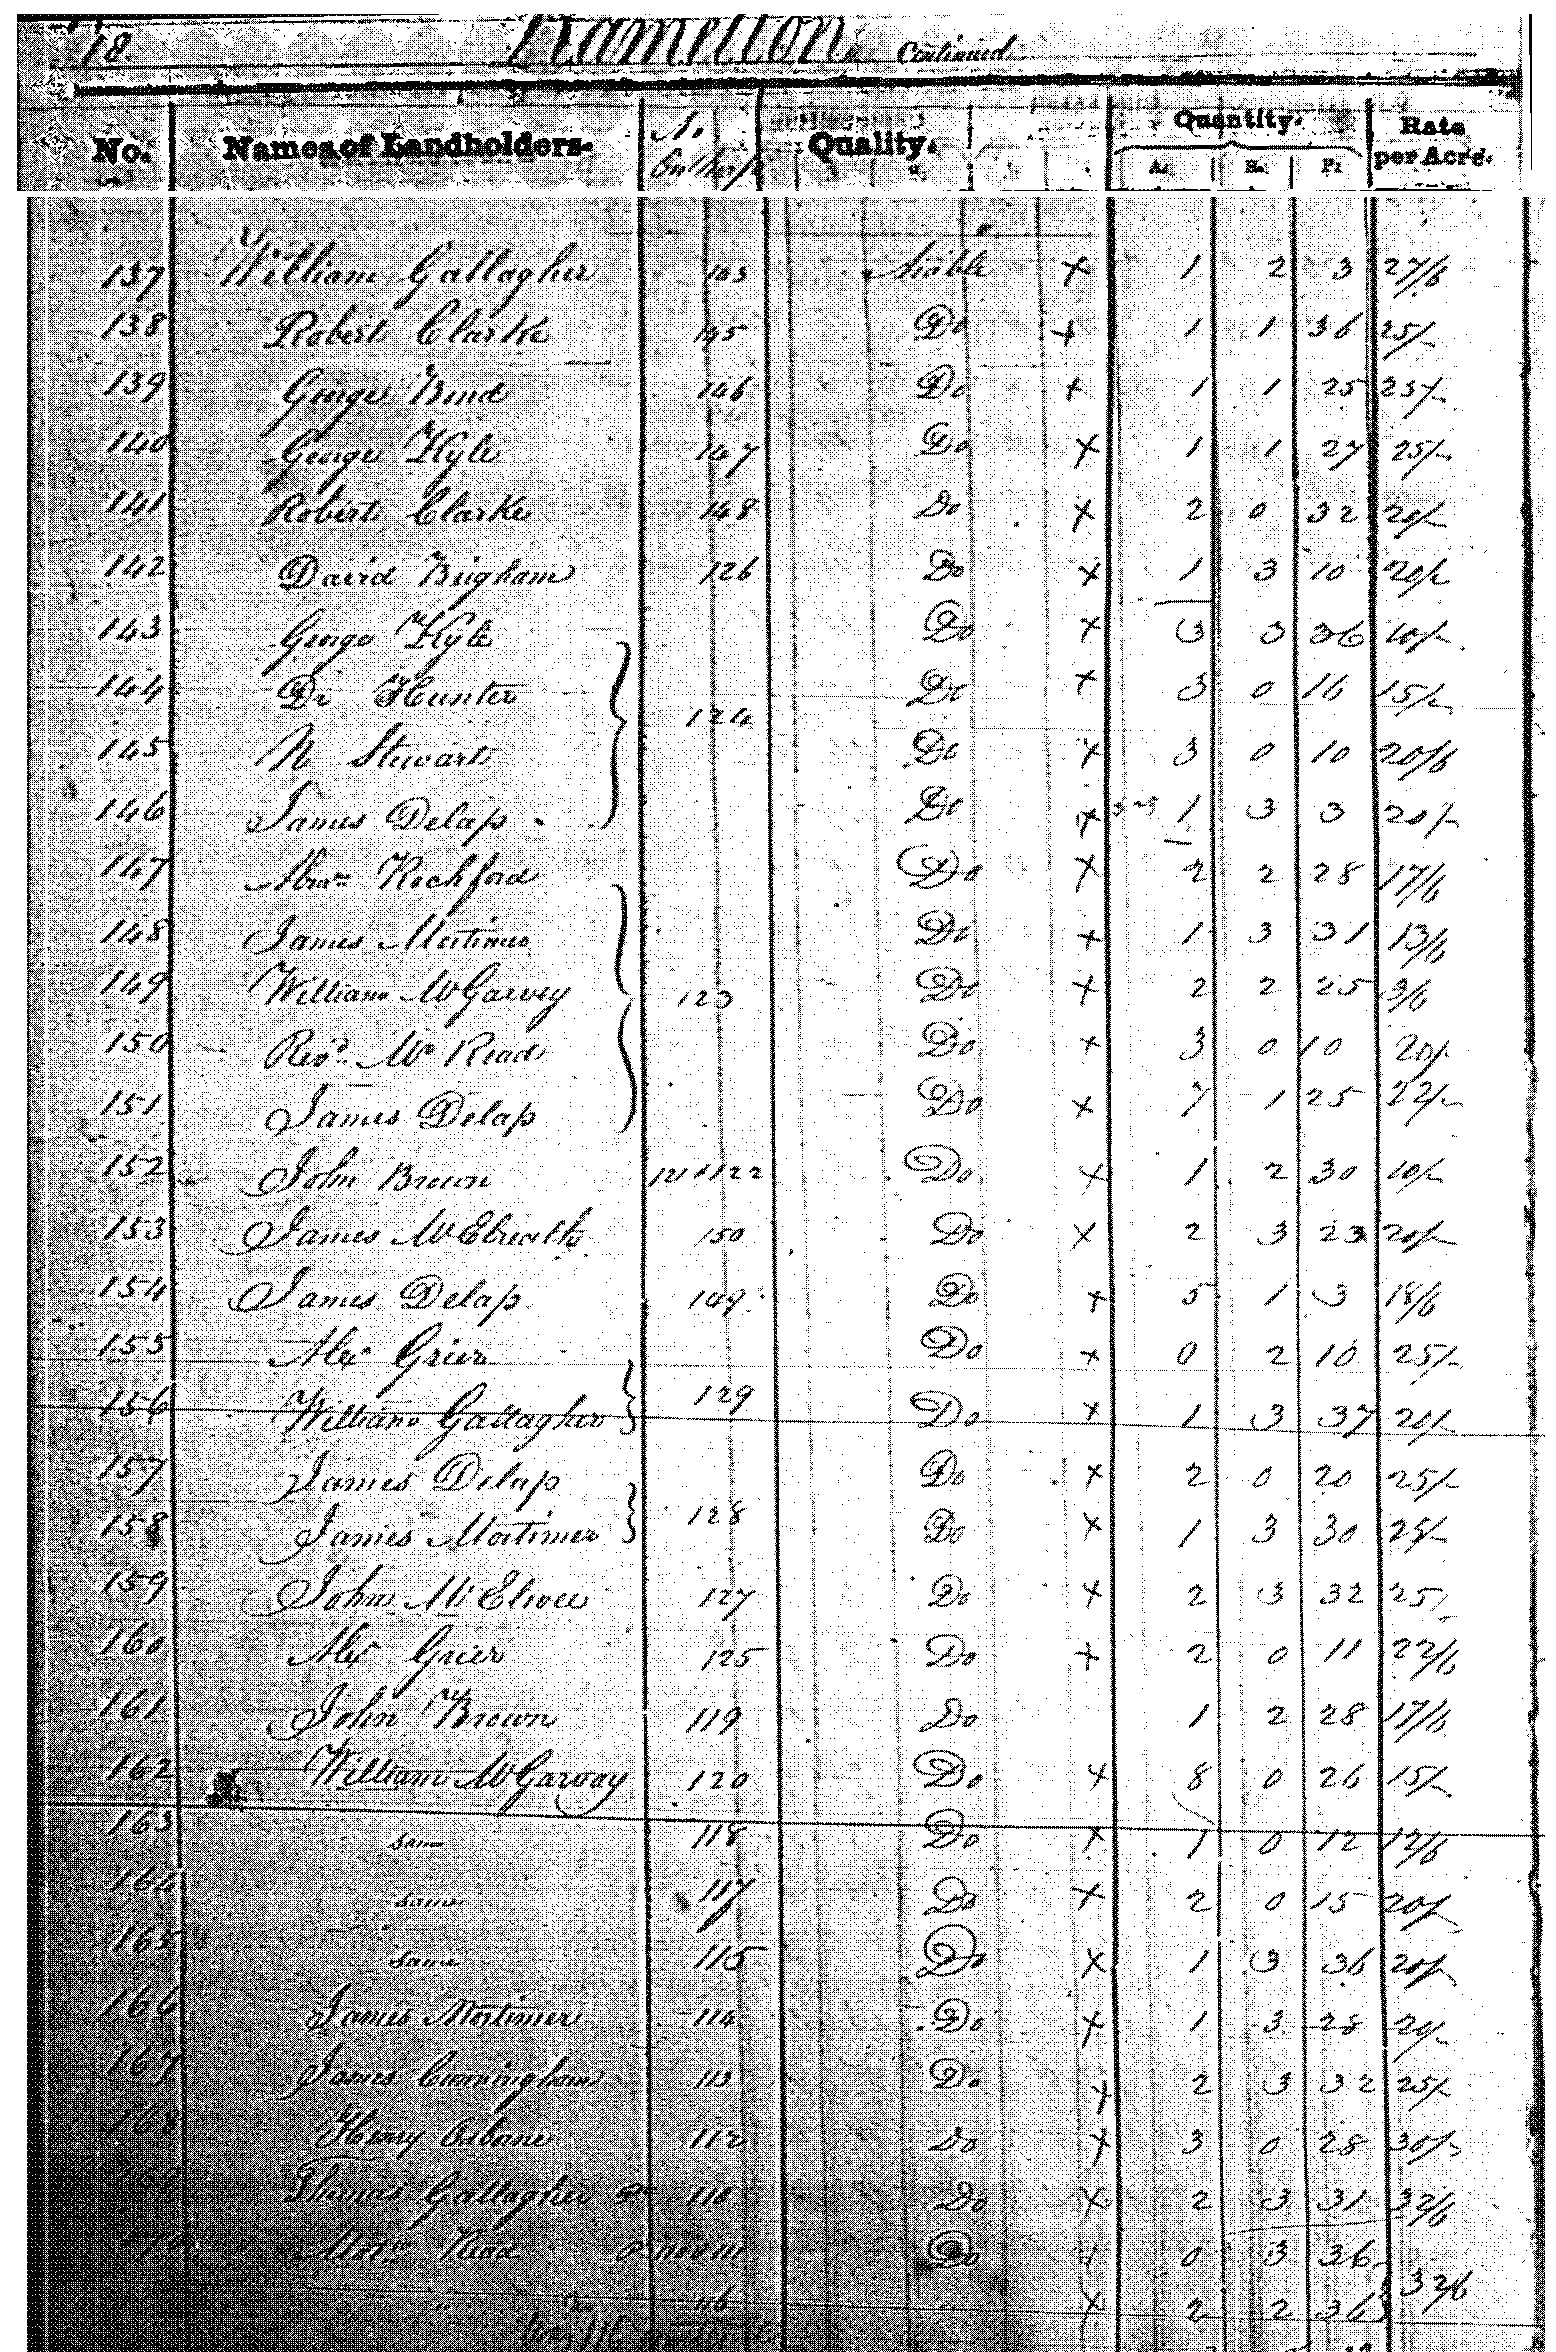 18. Ramelton Continued
No. Names of Landholders. No. on the Map Quality. Quantity. A. R. P. Rate per Acre.
137 William Gallagher 143 Arable × 1 2 3 27/6
138 Robert Clarke 145 Do × 1 1 36 25/-
139 George Bond 146 Do × 1 1 25 25/-
140 George Kyle 147 Do × 1 1 27 25/-
141 Robert Clarke 148 Do × 2 0 32 20/-
142 David Bigham 126 Do × 1 3 10 20/-
143 George Kyle Do × 3 3 36 10/-
144 Dr Hunter Do × 3 0 16 15/-
124
145 N Stewart Do × 3 0 10 20/6
146 James Delap Do × 1 3 3 20/-
147 Abrm Rochford Do × 2 2 28 17/6
148 James Mortimer Do × 1 3 31 13/6
149 William McGarvey 123 Do × 2 2 25 3/6
150 Revd. Mr Read Do × 3 0 10 20/-
151 James Delap Do × 7 1 25 22/-
152 John Brown 121 & 122 Do × 1 2 30 10/-
153 James McElwath 150 Do × 2 3 23 20/-
154 James Delap 149 Do × 5 1 3 18/6
155 Alex Grier Do × 0 2 10 25/-
129
156 William Gallagher Do × 1 3 37 20/-
157 James Delap Do × 2 0 20 25/-
128
158 James Mortimer Do × 1 3 30 25/-
159 John McElwee 127 Do × 2 3 32 25/-
160 Alex Grier 125 Do × 2 0 11 22/6
161 John Brown 119 Do 1 2 28 17/6
162 William McGarvay 120 Do × 8 0 26 15/-
163 same 118 Do × 1 0 12 12/6
164 same 117 Do × 2 0 15 20/-
165 same 115 Do × 1 3 36 20/-
166 James Mortimer 114 Do × 1 3 28 20/-
167 James Cunningham 113 Do × 2 3 32 25/-
168 Henry 112 Do × 3 0 28 30/-
Gallagher 110 Do × 2 3 31 32/6
Do × 0 3 36
32/6
116 × 2 2 36